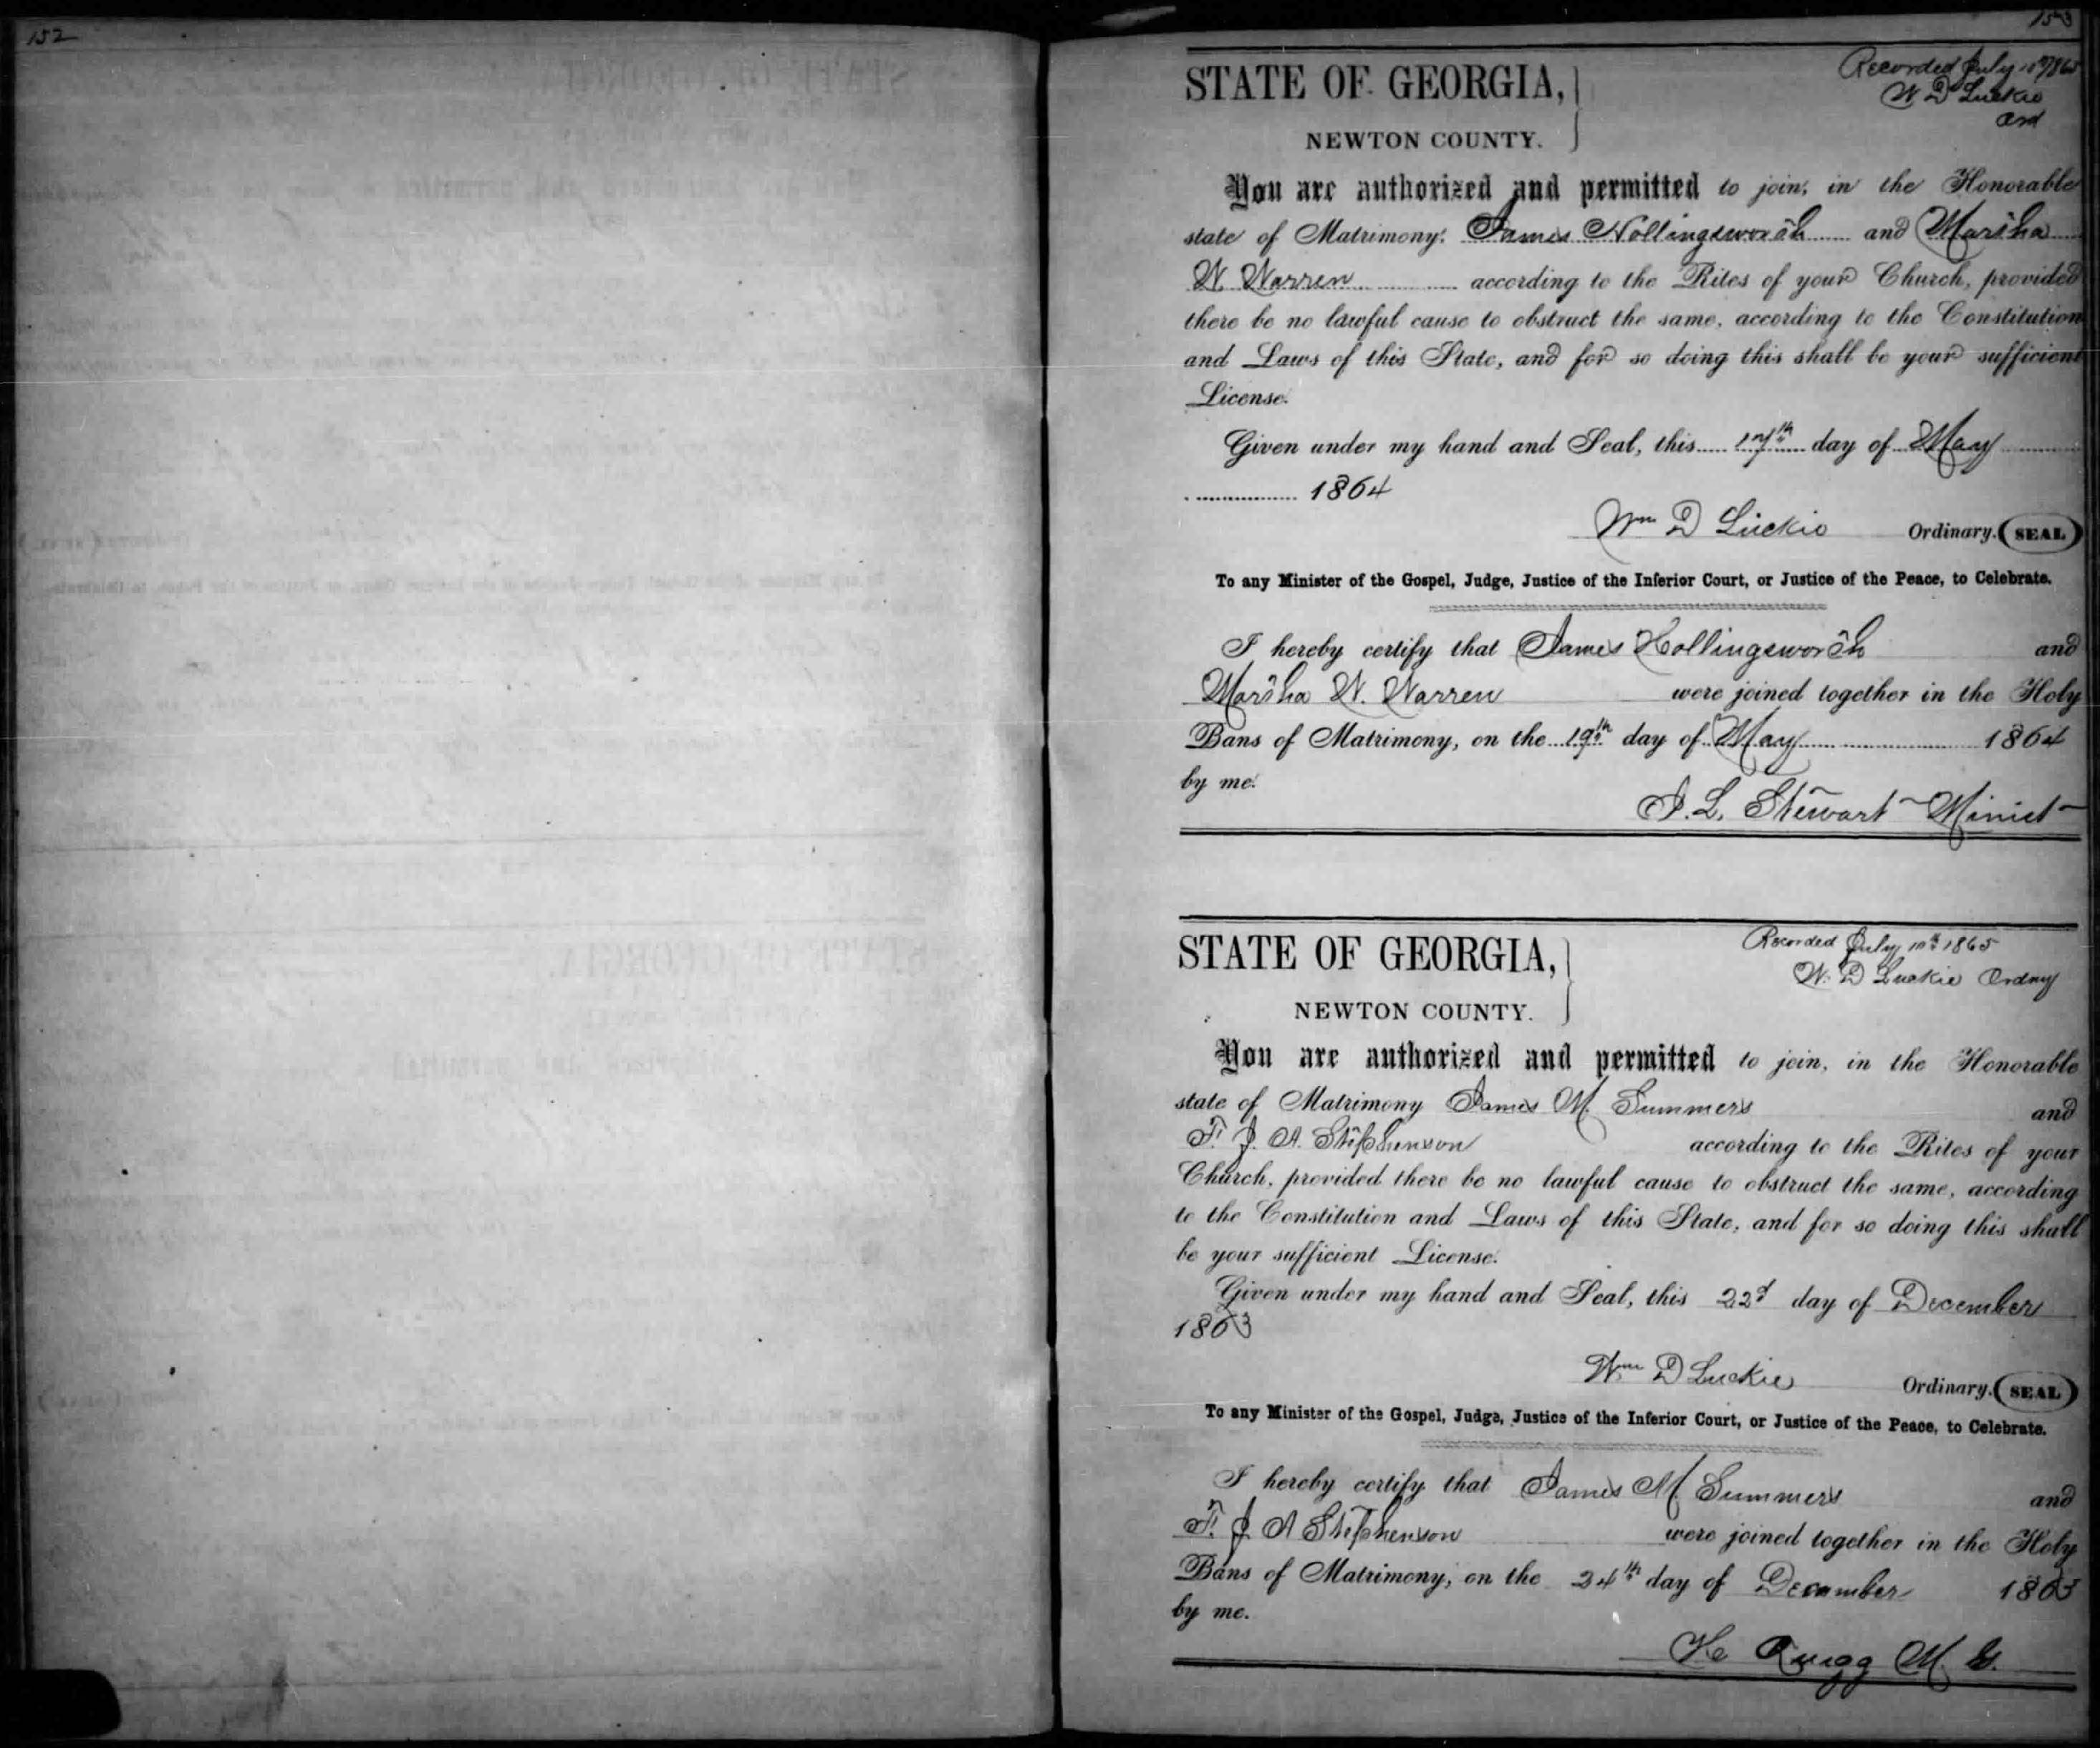 152
153
Recorded July 10th 1865
W D Luckie
Ord
STATE OF GEORGIA,
NEWTON COUNTY.
You are authorized and permitted to join, in the Honorable
state of Matrimony, James Hollingsworth and Martha
W. Warren according to the Rites of your Church, provided
there be no lawful cause to obstruct the same, according to the Constitution
and Laws of this State, and for so doing this shall be your sufficient
License.
Given under my hand and Seal, this 17th day of May
1864
Wm D Luckie Ordinary. (SEAL)
To any Minister of the Gospel, Judge, Justice of the Inferior Court, or Justice of the Peace, to Celebrate.
I hereby certify that James Hollingsworth and
Martha W. Warren were joined together in the Holy
Bans of Matrimony, on the 19th day of May 1864
by me.
J. L. Stewart Minist
Recorded July 10th 1865
W. D Luckie Ordny
STATE OF GEORGIA,
NEWTON COUNTY.
You are authorized and permitted to join, in the Honorable
state of Matrimony James M. Summers and
F. J. A. Stephenson according to the Rites of your
Church, provided there be no lawful cause to obstruct the same, according
to the Constitution and Laws of this State, and for so doing this shall
be your sufficient License.
Given under my hand and Seal, this 22d day of December
1863
Wm D Luckie Ordinary. (SEAL)
To any Minister of the Gospel, Judge, Justice of the Inferior Court, or Justice of the Peace, to Celebrate.
I hereby certify that James M. Summers and
F. J. A Stephenson were joined together in the Holy
Bans of Matrimony, on the 24th day of December 1863
by me.
M. G.